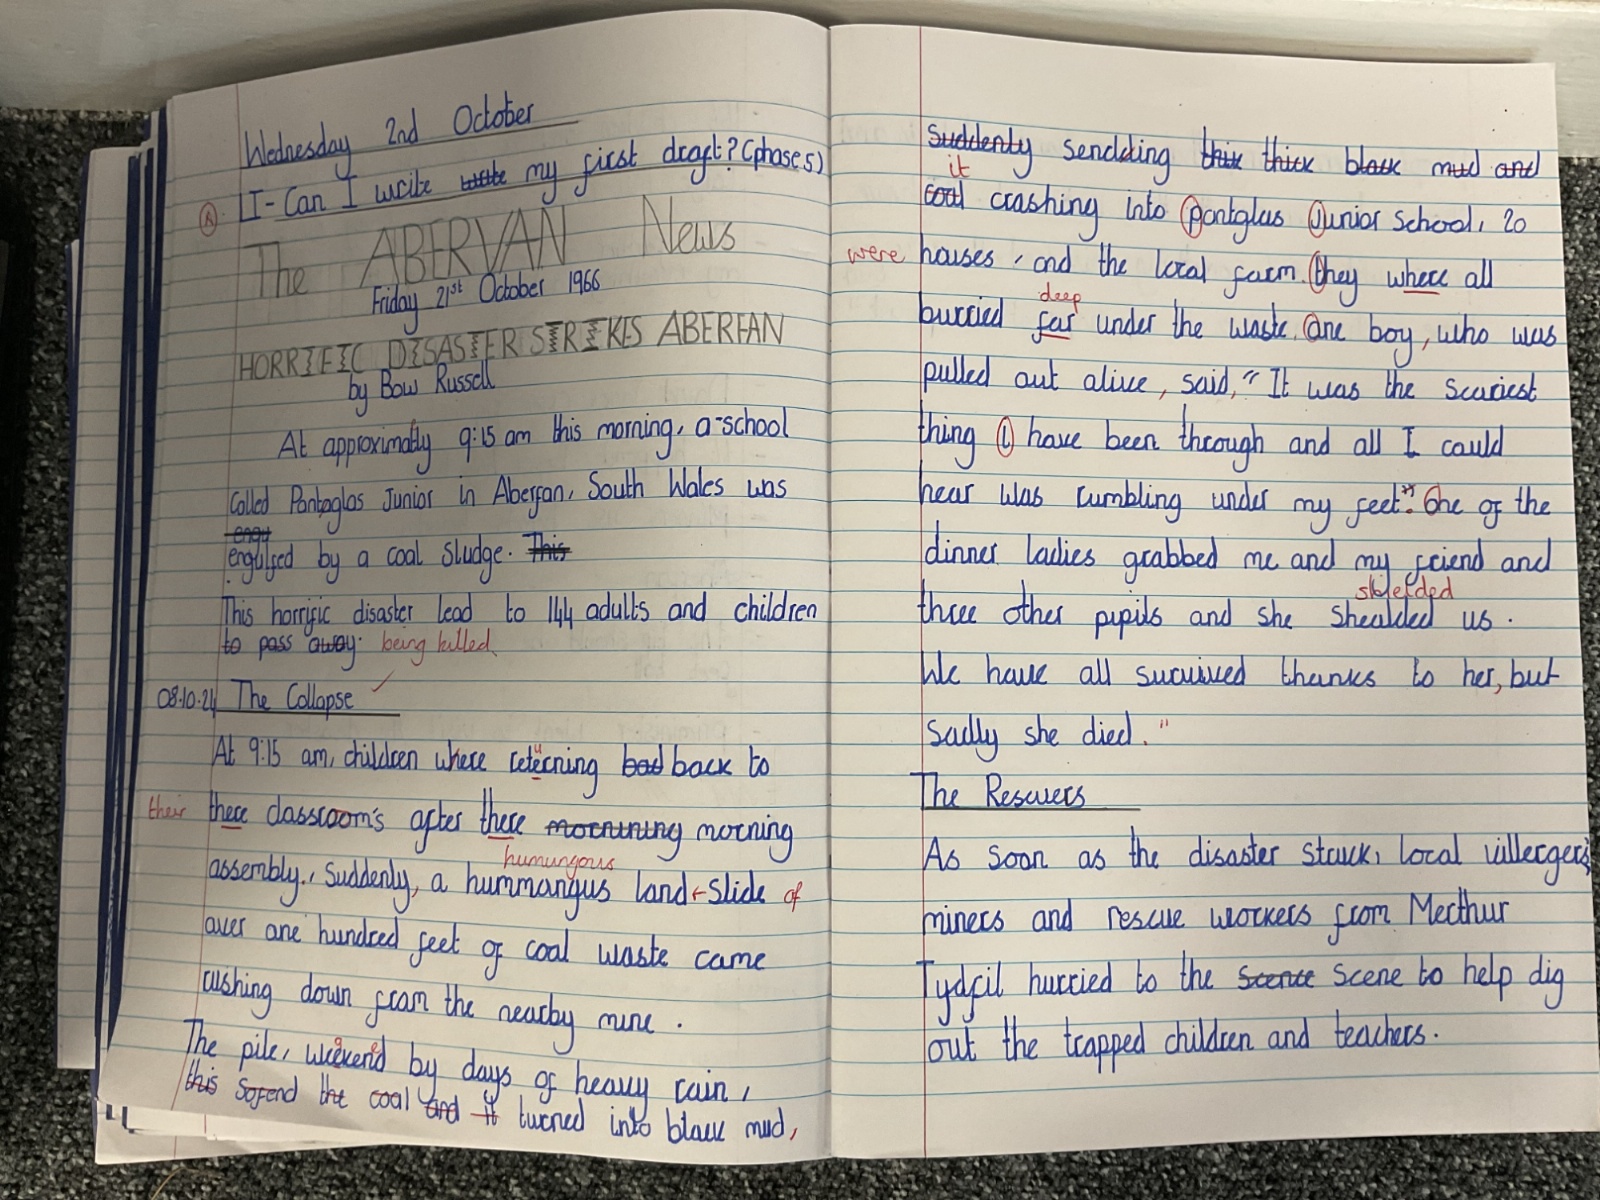 Wednesday 2nd October
LI - Can I write write my first draft? (phase 5)
The ABERVAN News
Friday 21st October 1966
HORRIFIC DISASTER STRIKES ABERFAN
by Bow Russell
At approximatly 9:15 am this morning, a school
called Pantaglas Junior in Aberfan, South Wales was
engu
engulfed by a coal sludge. This
This horrific disaster lead to 144 adults and children
to pass away. being killed.
08.10.24 The Collapse
At 9:15 am, children where returning bad back to
their there classroom's after there mornining morning
humungous
assembly. Suddenly, a hummangus land-slide of
over one hundred feet of coal waste came
rushing down from the nearby mine.
The pile, weekend by days of heavy rain,
this sofend the coal and it turned into black mud,
Suddenly sending thix thick black mud and
it
coal crashing into pantglas Junior School, 20
were houses, and the local farm. they where all
deep
burried far under the waste. One boy, who was
pulled out alive, said, "It was the scariest
thing i have been through and all I could
hear was rumbling under my feet". One of the
dinner ladies grabbed me and my friend and
shielded
three other pupils and she shealded us.
We have all survived thanks to her, but
sadly she died."
The Rescuers
As soon as the disaster struck, local villergers,
miners and rescue workers from Merthur
Tydfil hurried to the scence scene to help dig
out the trapped children and teachers.